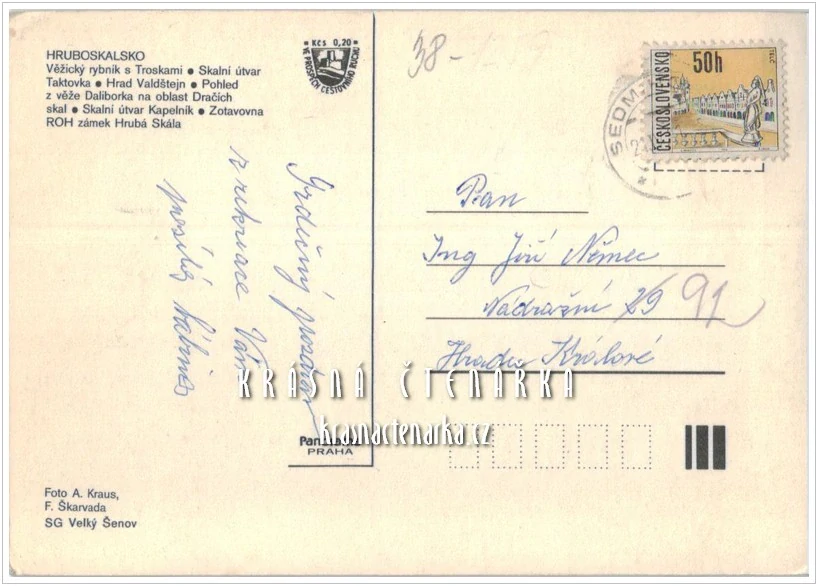 HRUBOSKALSKO
Věžický rybník s Troskami ● Skalní útvar
Taktovka ● Hrad Valdštejn ● Pohled
z věže Daliborka na oblast Dračích
skal ● Skalní útvar Kapelník ● Zotavovna
ROH zámek Hrubá Skála
Kčs 0,20
VE PROSPĚCH CESTOVNÍHO RUCHU
38-
ČESKOSLOVENSKO
50h
TELČ
SEDM
Srdečný pozdrav
z rekreace Vám
posílá
Pan
Ing Jiří Němec
Nádražní 29 92
Hradec Králové
KRÁSNÁ ČTENÁRKA
krasnactenarka.cz
PRAHA
Foto A. Kraus,
F. Škarvada
SG Velký Šenov